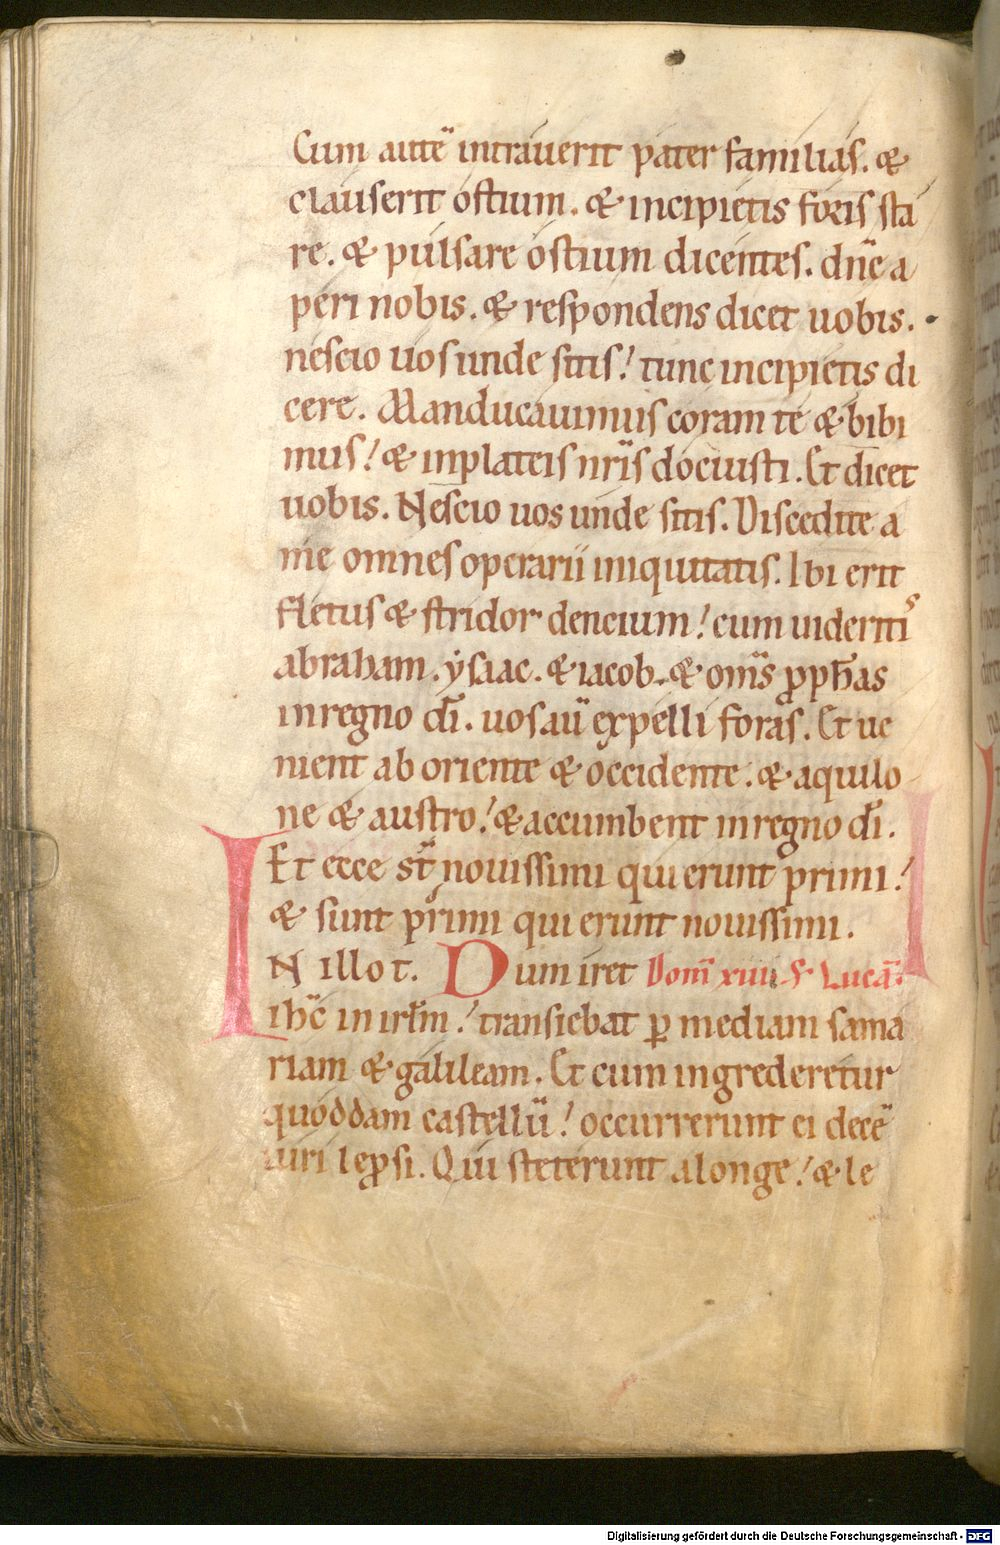 Cum autē intrauerit pater familias. &
clauserit ostium. & incipietis foris sta
re. & pulsare ostium dicentes. dn̄e a
peri nobis. & respondens dicet uobis.
nescio uos unde sitis! tunc incipietis di
cere. Manducauimus coram te & bibi
mus! & in plateis nr̄is docuisti. Et dicet
uobis. Nescio uos unde sitis. Discedite a
me omnes operarii iniquitatis. Ibi erit
fletus & stridor dencium! cum uideritis
abraham. ysaac. & iacob. & om̄s ꝓph̄as
in regno dī. uos aū expelli foras. Et ue
nient ab oriente & occidente. & aquilo
ne & austro! & accumbent in regno dī.
Et ecce st̄ nouissimi qui erunt primi!
& sunt primi qui erunt nouissimi.
IN illo t. Dum iret Dom̄ xiiii. S. Lucā.
ih̄c in irl̄m! transiebat ꝑ mediam sama
riam & galileam. Et cum ingrederetur
quoddam castellū! occurrerunt ei decē
uiri leꝓsi. Qui steterunt a longe! & le
Digitalisierung gefördert durch die Deutsche Forschungsgemeinschaft - DFG